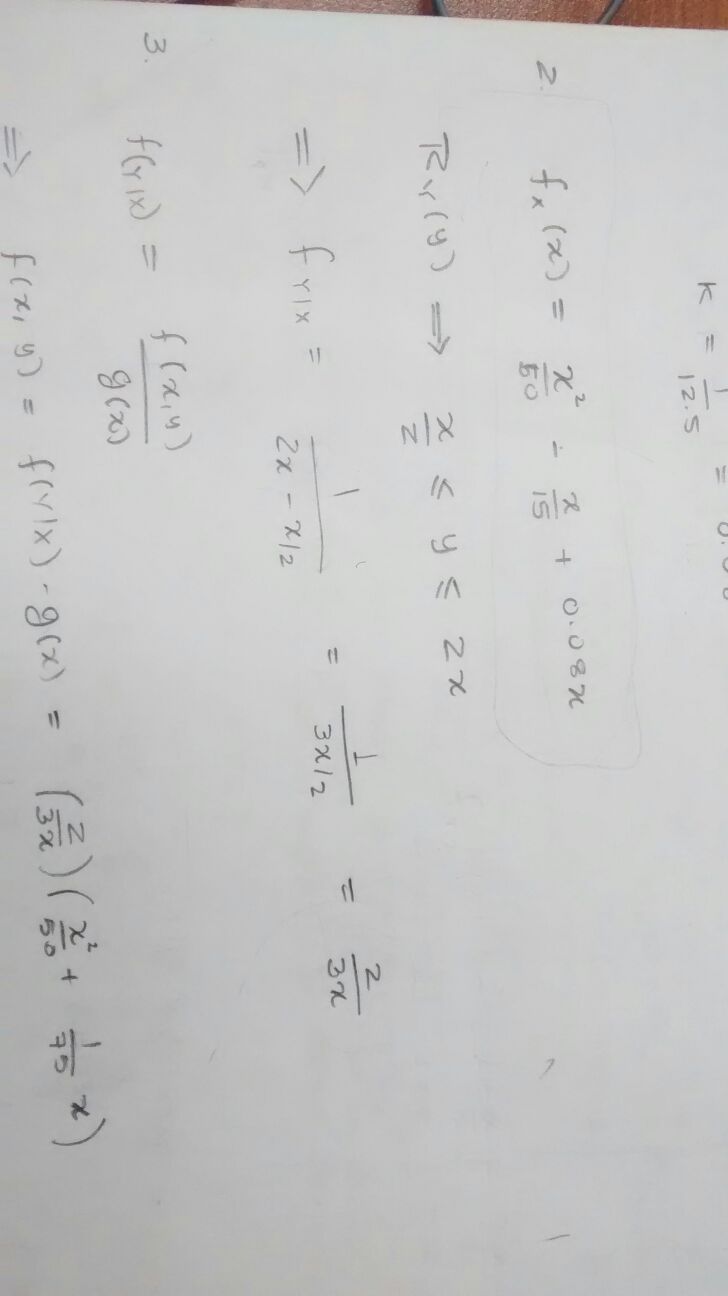 K = 1/12.5 = 0.0
2. fx(x) = x²/50 - x/15 + 0.08x
Ry(y) ⇒ x/2 ≤ y ≤ 2x
⇒ fY|X = 1/(2x - x/2) = 1/(3x/2) = 2/3x
3. f(Y|X) = f(x,y)/g(x)
⇒ f(x,y) = f(Y|X) - g(x) = (2/3x)(x²/50 + 1/75 x)